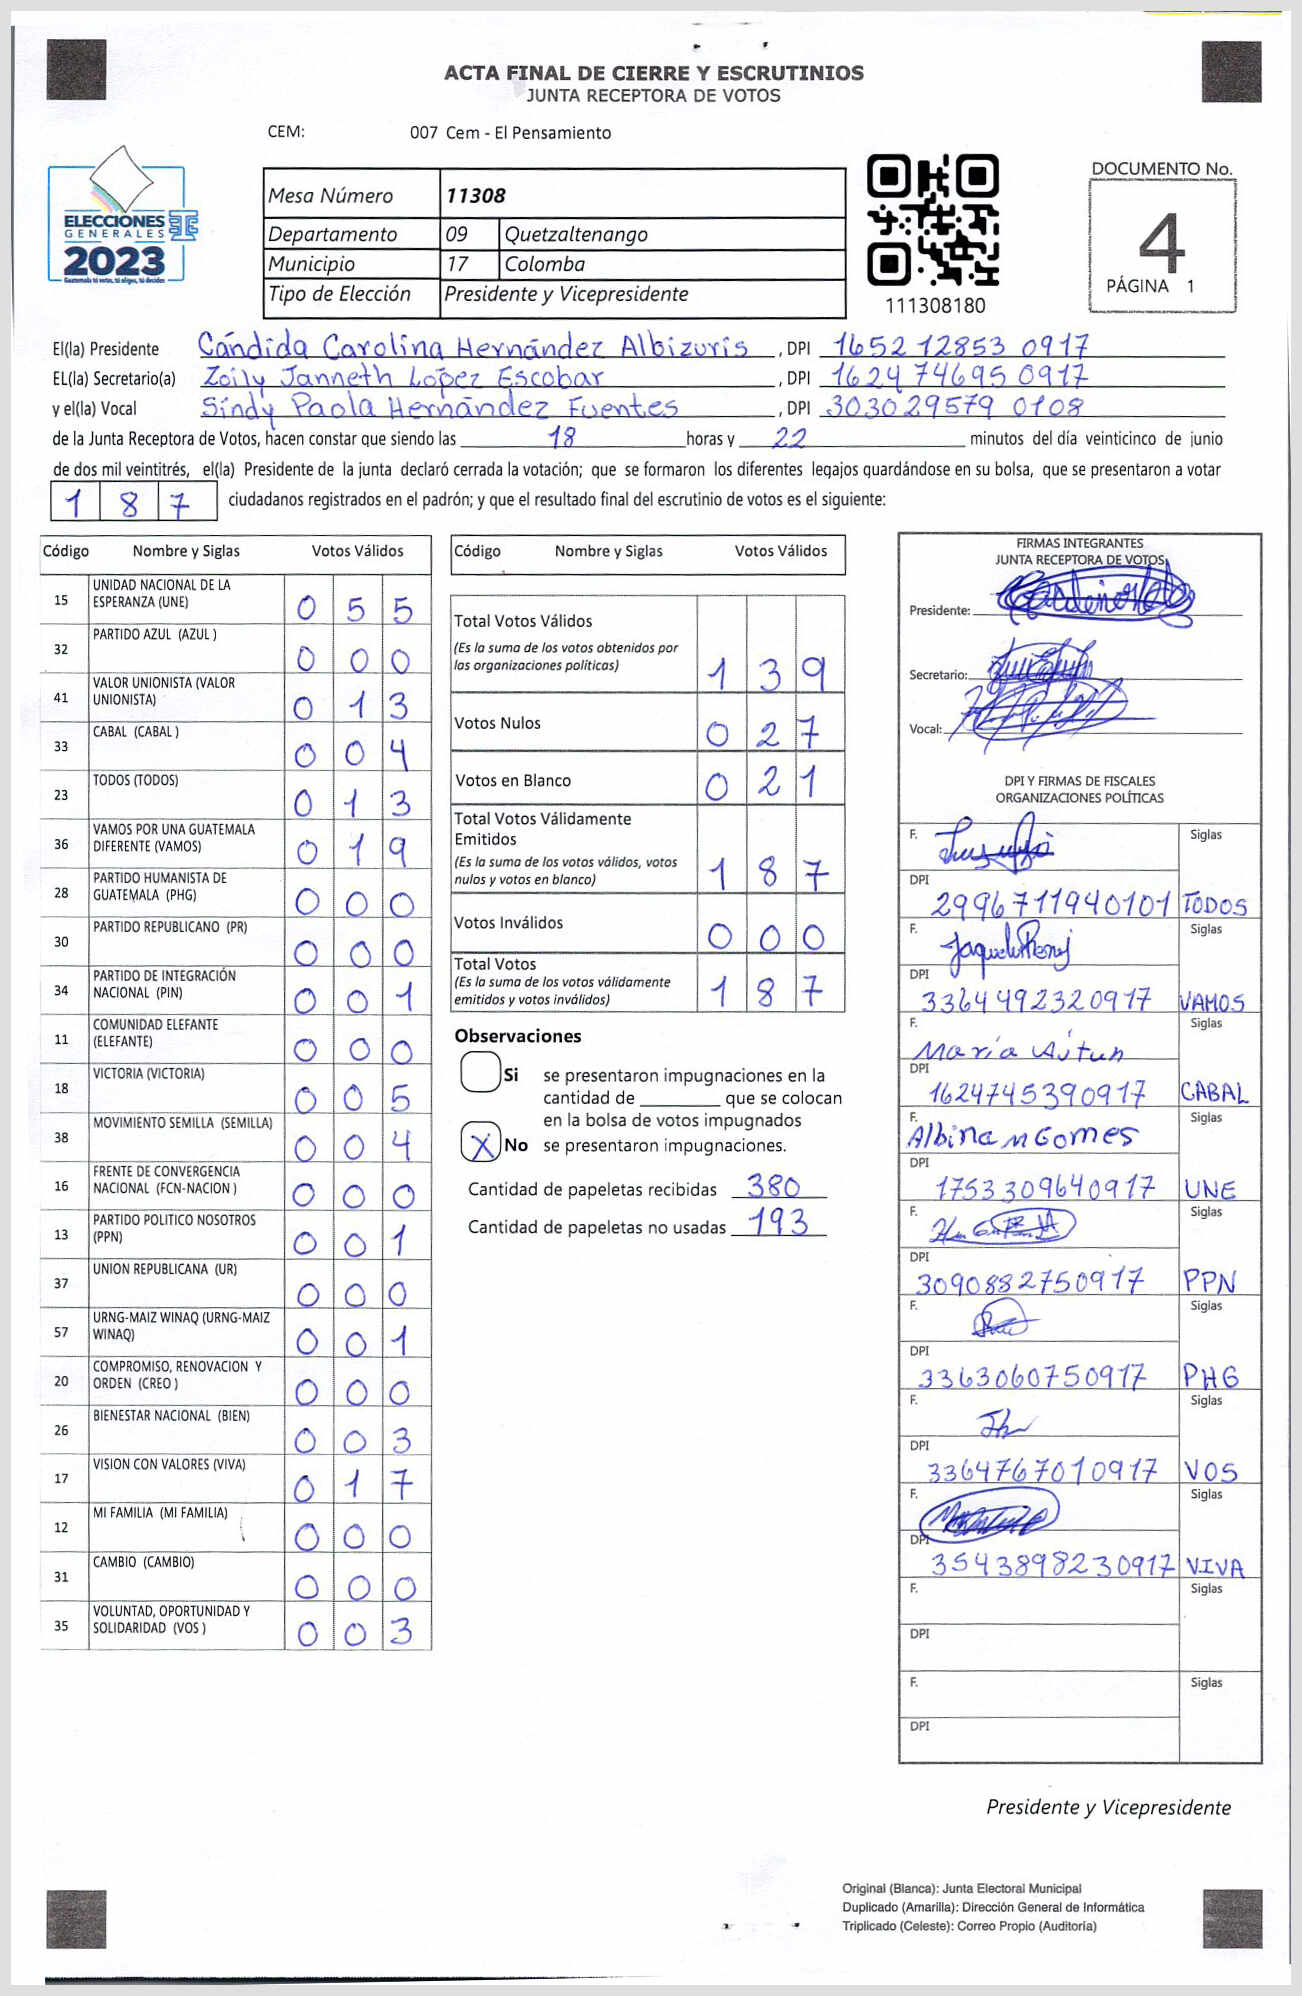 ACTA FINAL DE CIERRE Y ESCRUTINIOS
JUNTA RECEPTORA DE VOTOS
CEM: 007 Cem - El Pensamiento
ELECCIONES
GENERALES
2023
Guatemala tú votas, tú eliges, tú decides
Mesa Número 11308
Departamento 09 Quetzaltenango
Municipio 17 Colomba
Tipo de Elección Presidente y Vicepresidente
111308180
DOCUMENTO No.
4
PÁGINA 1
El(la) Presidente Cándida Carolina Hernández Albizuris , DPI 1652 12853 0917
EL(la) Secretario(a) Zoily Janneth López Escobar , DPI 1624 74695 0917
y el(la) Vocal Sindy Paola Hernández Fuentes , DPI 3030 29579 0108
de la Junta Receptora de Votos, hacen constar que siendo las 18 horas y 22 minutos del día veinticinco de junio
de dos mil veintitrés, el(la) Presidente de la junta declaró cerrada la votación; que se formaron los diferentes legajos quardándose en su bolsa, que se presentaron a votar
1 8 7 ciudadanos registrados en el padrón; y que el resultado final del escrutinio de votos es el siguiente:
Código Nombre y Siglas Votos Válidos
15 UNIDAD NACIONAL DE LA ESPERANZA (UNE) 0 5 5
32 PARTIDO AZUL (AZUL ) 0 0 0
41 VALOR UNIONISTA (VALOR UNIONISTA) 0 1 3
33 CABAL (CABAL ) 0 0 4
23 TODOS (TODOS) 0 1 3
36 VAMOS POR UNA GUATEMALA DIFERENTE (VAMOS) 0 1 9
28 PARTIDO HUMANISTA DE GUATEMALA (PHG) 0 0 0
30 PARTIDO REPUBLICANO (PR) 0 0 0
34 PARTIDO DE INTEGRACIÓN NACIONAL (PIN) 0 0 1
11 COMUNIDAD ELEFANTE (ELEFANTE) 0 0 0
18 VICTORIA (VICTORIA) 0 0 5
38 MOVIMIENTO SEMILLA (SEMILLA) 0 0 4
16 FRENTE DE CONVERGENCIA NACIONAL (FCN-NACION ) 0 0 0
13 PARTIDO POLITICO NOSOTROS (PPN) 0 0 1
37 UNION REPUBLICANA (UR) 0 0 0
57 URNG-MAIZ WINAQ (URNG-MAIZ WINAQ) 0 0 1
20 COMPROMISO, RENOVACION Y ORDEN (CREO ) 0 0 0
26 BIENESTAR NACIONAL (BIEN) 0 0 3
17 VISION CON VALORES (VIVA) 0 1 7
12 MI FAMILIA (MI FAMILIA) 0 0 0
31 CAMBIO (CAMBIO) 0 0 0
35 VOLUNTAD, OPORTUNIDAD Y SOLIDARIDAD (VOS ) 0 0 3
Código Nombre y Siglas Votos Válidos
Total Votos Válidos
(Es la suma de los votos obtenidos por
las organizaciones políticas) 1 3 9
Votos Nulos 0 2 7
Votos en Blanco 0 2 1
Total Votos Válidamente
Emitidos
(Es la suma de los votos válidos, votos
nulos y votos en blanco) 1 8 7
Votos Inválidos 0 0 0
Total Votos
(Es la suma de los votos válidamente
emitidos y votos inválidos) 1 8 7
Observaciones
Si se presentaron impugnaciones en la
cantidad de ________ que se colocan
en la bolsa de votos impugnados
X No se presentaron impugnaciones.
Cantidad de papeletas recibidas 380
Cantidad de papeletas no usadas 193
FIRMAS INTEGRANTES
JUNTA RECEPTORA DE VOTOS
Presidente:
Secretario:
Vocal:
DPI Y FIRMAS DE FISCALES
ORGANIZACIONES POLÍTICAS
F. Siglas
DPI 2996711940101 TODOS
F. Siglas
DPI 3364492320917 VAMOS
F. María Siglas
DPI 1624745390917 CABAL
F. Albina M Gomes Siglas
DPI 1753309640917 UNE
F. Siglas
DPI 3090882750917 PPN
F. Siglas
DPI 3363060750917 PHG
F. Siglas
DPI 3364767010917 VOS
F. Siglas
DPI 3543898230917 VIVA
F. Siglas
DPI
F. Siglas
DPI
Presidente y Vicepresidente
Original (Blanca): Junta Electoral Municipal
Duplicado (Amarilla): Dirección General de Informática
Triplicado (Celeste): Correo Propio (Auditoría)